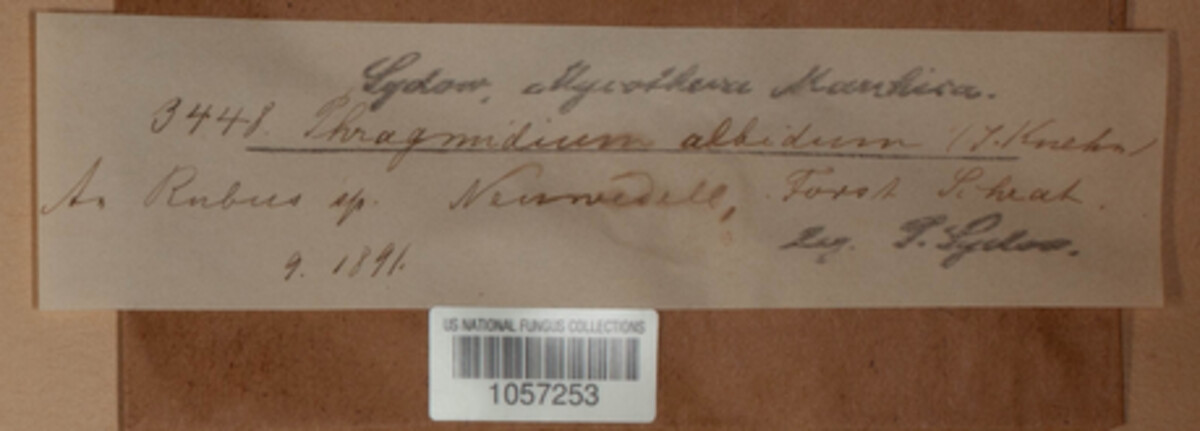 Sydow, Mycotheca Marchica.
3448. Phragmidium albidum (J. Kuehn)
An Rubus sp. Neuwedell, Forst
Leg. P. Sydow.
9. 1891.
US NATIONAL FUNGUS COLLECTIONS
1057253